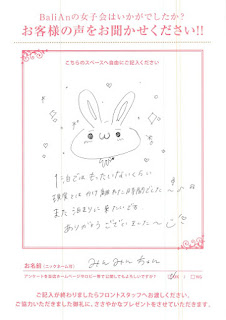 BaliAnの女子会はいかがでしたか?
お客様の声をお聞かせください!!
こちらのスペースへ自由にご記入ください
1泊ではもったいないくらい
現実とはかけ離れた時間でした〜
また泊まりに来たいです
ありがとうございました〜
お名前(ニックネーム可)
みんみんちゃん
アンケートを当店ホームページやロビー等で公開してもよろしいですか?
□NG
ご記入が終わりましたらフロントスタッフへお渡しください。
ご協力いただきました御礼に、ささやかなプレゼントをさせていただきます。